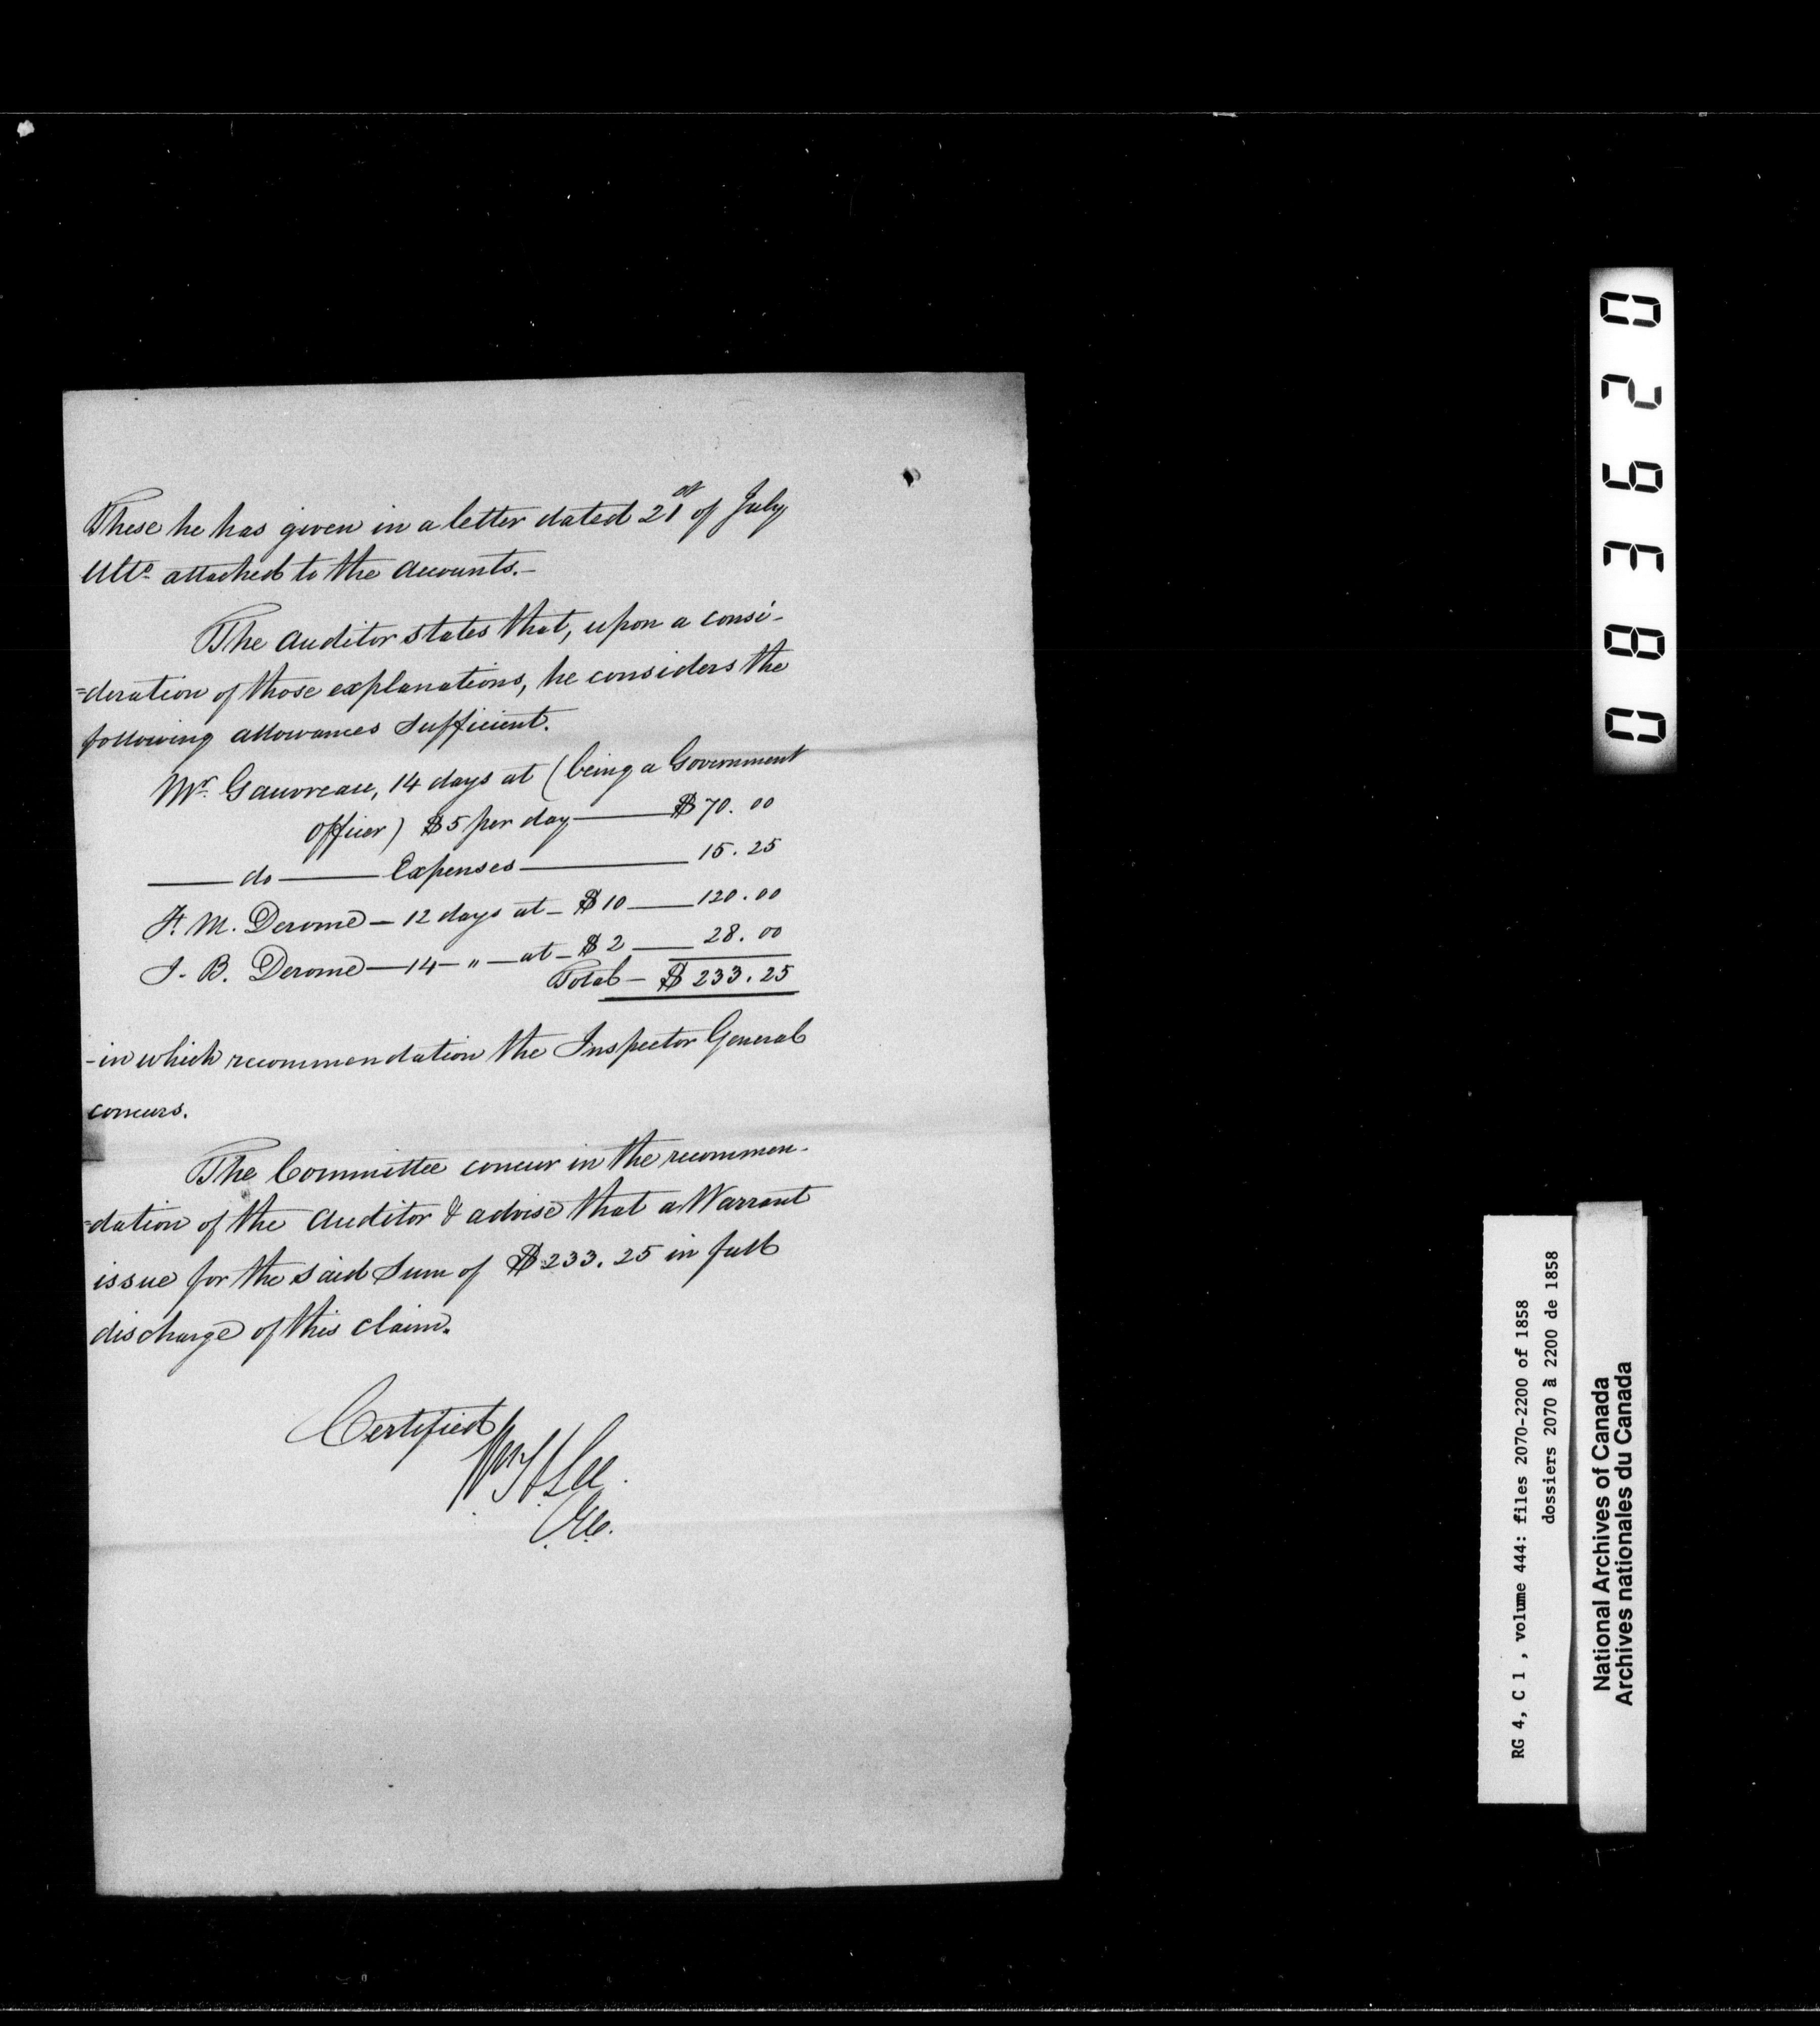 These he has given in a letter dated 21st of July
Ulto attached to the Accounts.-
The Auditor states that, upon a consi-
=deration of those explanations, he considers the
following allowances sufficient.
Mr. Gauvreau, 14 days at (being a Government
Officer) $5 per day $70.00
do Expenses 15.25
F. M. Derome - 12 days at - $10 120.00
J. B. Derome - 14 - " - at - $2 28.00
Total - $233.25
-in which recommendation the Inspector General
concurs.
The Committee concur in the recommen-
=dation of the Auditor & advise that a Warrant
issue for the said Sum of $233.25 in full
discharge of this claim.
Certified
Wm H Lee
C.E.C.
02963880
RG 4, C 1 , volume 444: files 2070-2200 of 1858
dossiers 2070 à 2200 de 1858
National Archives of Canada
Archives nationales du Canada